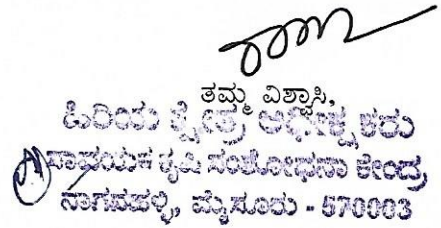 ತಮ್ಮ ವಿಶ್ವಾಸಿ,
ಹಿರಿಯ ಕ್ಷೇತ್ರ ಅಧೀಕ್ಷಕರು
ಸಾವಯವ ಕೃಷಿ ಸಂಶೋಧನಾ ಕೇಂದ್ರ
ನಾಗನಹಳ್ಳಿ, ಮೈಸೂರು - 570003